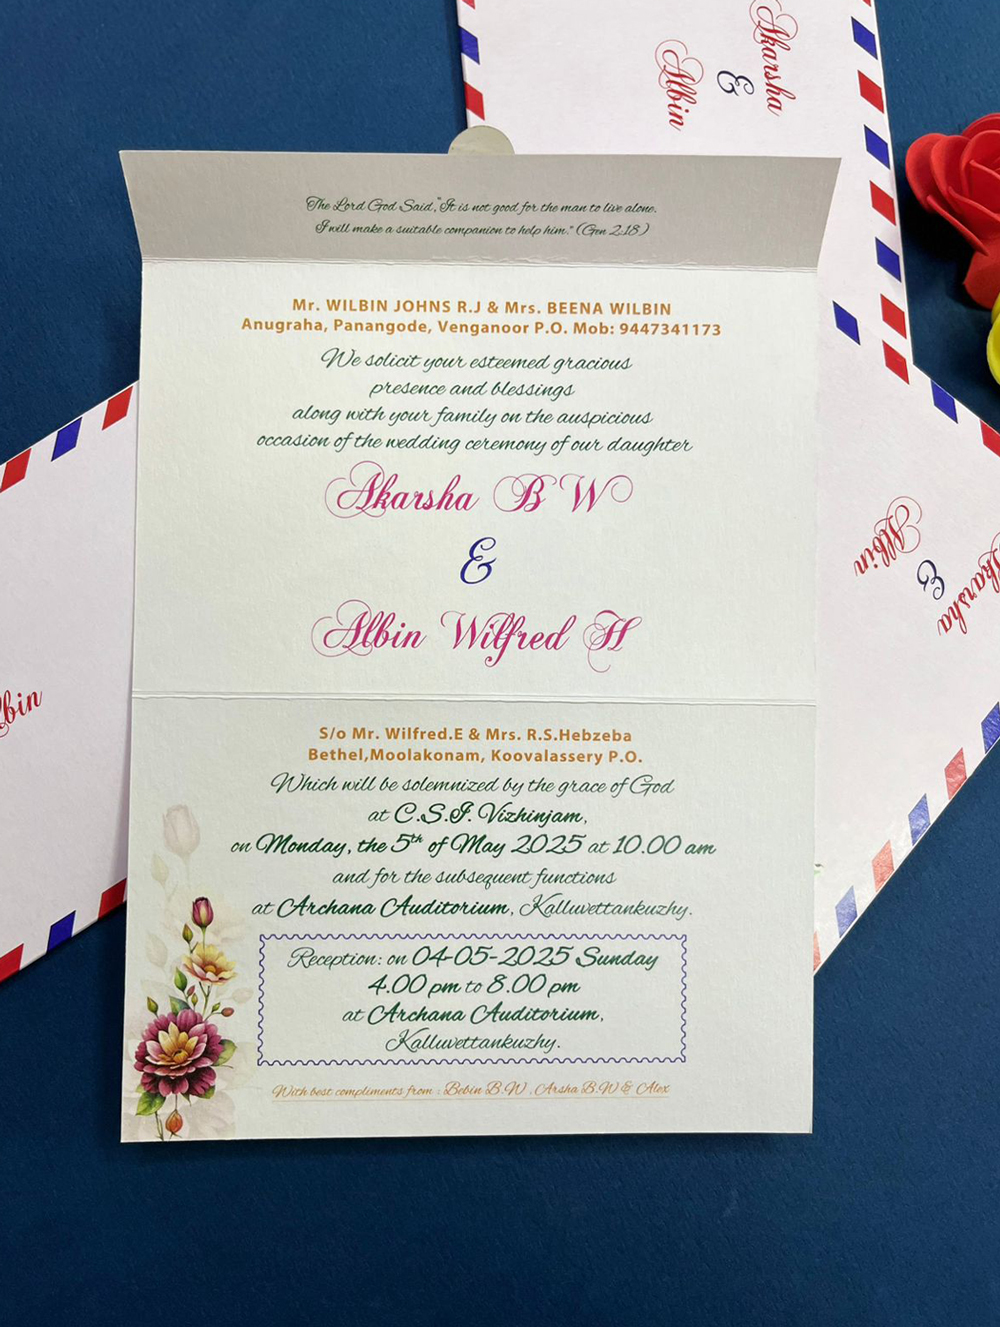 Akarsha
&
Albin
The Lord God Said,"It is not good for the man to live alone.
I will make a suitable companion to help him." (Gen 2.18)
Mr. WILBIN JOHNS R.J & Mrs. BEENA WILBIN
Anugraha, Panangode, Venganoor P.O. Mob: 9447341173
We solicit your esteemed gracious
presence and blessings
along with your family on the auspicious
occasion of the wedding ceremony of our daughter
Akarsha B W
&
Albin Wilfred H
S/o Mr. Wilfred.E & Mrs. R.S.Hebzeba
Bethel,Moolakonam, Koovalassery P.O.
Which will be solemnized by the grace of God
at C.S.I. Vizhinjam,
on Monday, the 5th of May 2025 at 10.00 am
and for the subsequent functions
at Archana Auditorium, Kalluvettankuzhy.
Reception: on 04-05-2025 Sunday
4.00 pm to 8.00 pm
at Archana Auditorium,
Kalluvettankuzhy.
With best compliments from : Bebin B.W , Arsha B.W & Alex
Akarsha
&
Albin